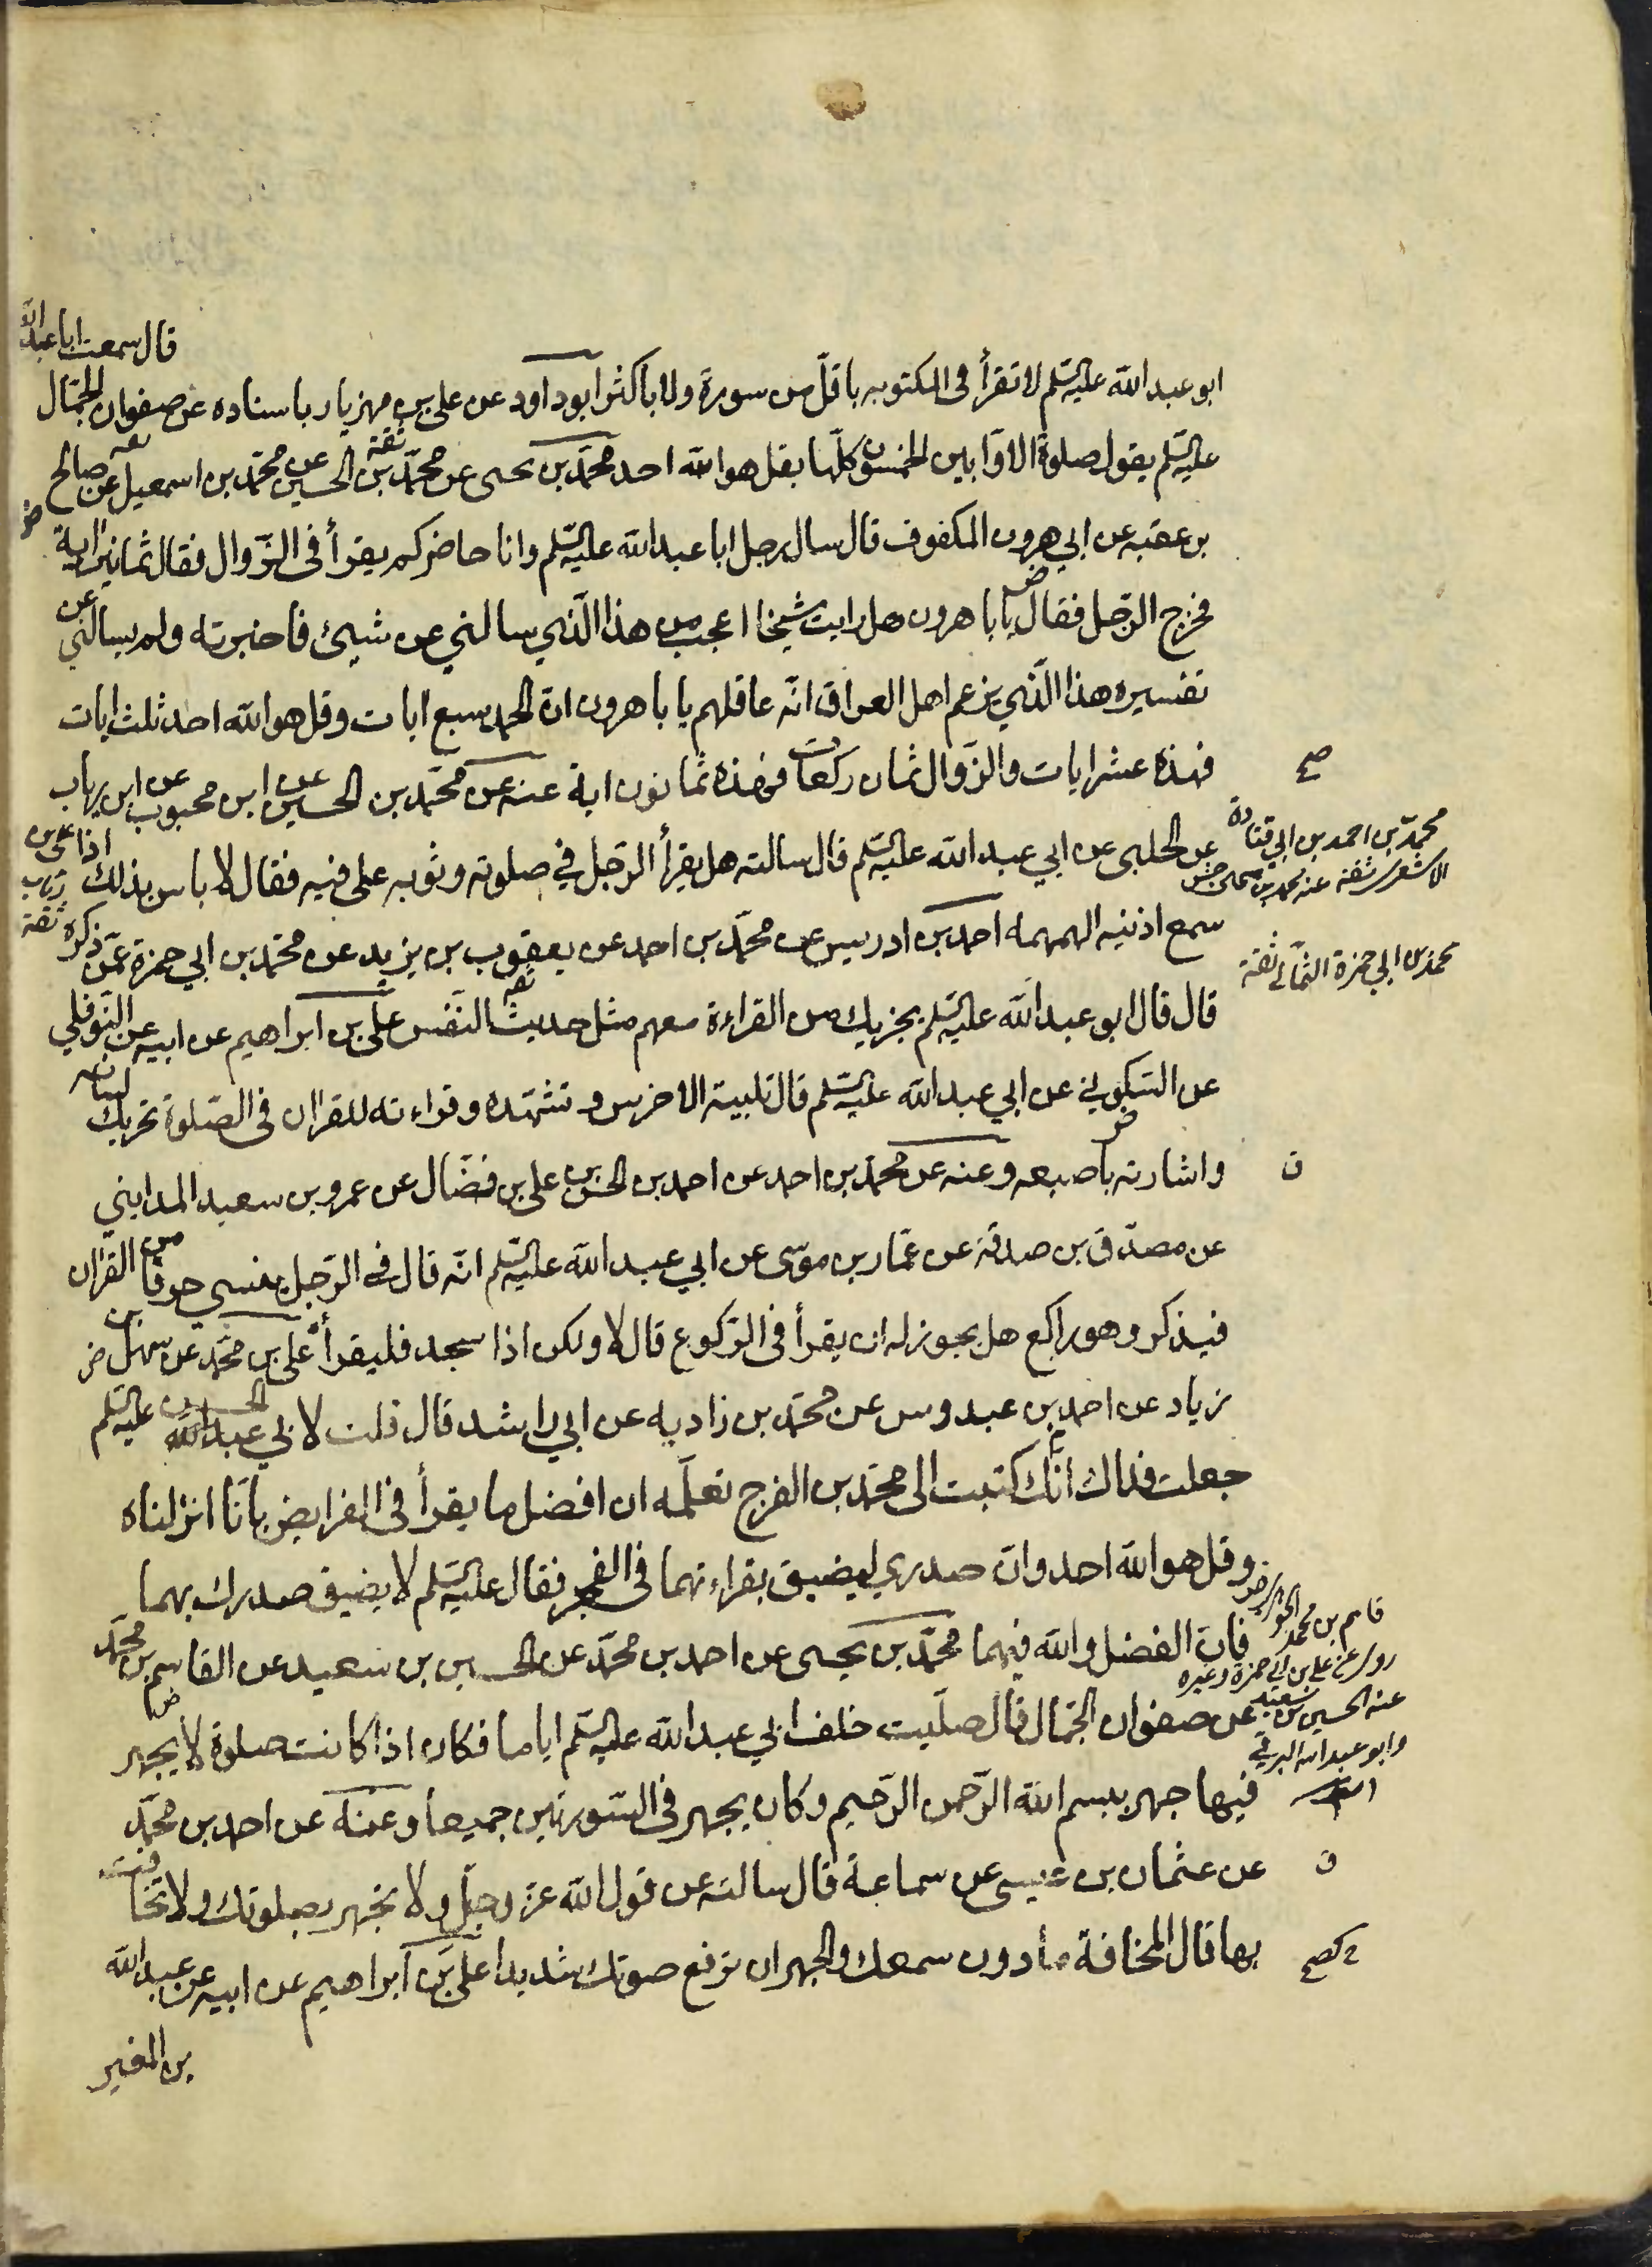 قال سمعت ابا عبد الله
ابو عبد الله عليه السلم لا تقرأ فى المكتوبه باقلّ من سورة ولا باكثر ابو داود عن على بن مهزيار باسناده عن صفوان الجمّال
عليه السلم يقول صلوة الاوّابين الخمسون كلّها بقل هو الله احد محمّد بن يحيى عن محمّد بن الحسين عن محمّد بن اسمعيل عن صالح
بن عقبه عن ابي هرون المكفوف قال سال رجل ابا عبد الله عليه السّلم وانا حاضر كم يقرأ فى الزّوال فقال ثمانين اية
فخرج الرّجل فقال يا با هرون هل رايت شيخا اعجب من هذا الّذي سالني عن شيئ فاخبرته ولم يسالني عن
تفسيره هذا الّذي يزعم اهل العراق انّه عاقلهم يا با هرون انّ الحمد سبع ايات وقل هو الله احد ثلث ايات
فهذه عشر ايات والزّوال ثمان ركعات فهذه ثمانون اية عنه عن محمّد بن الحسين عن ابن محبوب عن ابن رياب
صح
عن الحلبى عن ابي عبد الله عليه السّلم قال سالته هل يقرأ الرّجل في صلوته وثوبه على فيه فقال لا باس بذلك اذا
محمّد بن احمد بن ابي قتادة
سمع اذنيه الهمهمه احمد بن ادريس عن محمّد بن احمد عن يعقوب بن يزيد عن محمّد بن ابي حمزة عمّن ذكره
محمد بن ابي حمزة الثمالى ثقة
قال قال ابو عبد الله عليه السّلم يجزيك من القراءة معهم مثل حديث النّفس على بن ابراهيم عن ابيه عن النّوفلي
عن السّكوني عن ابي عبد الله عليه السّلم قال تلبية الاخرس وتشهّده وقراءته للقران فى الصّلوة تحريك لسانه
واشارته باصبعه وعنه عن محمّد بن احمد عن احمد بن الحسن بن على بن فضّال عن عمرو بن سعيد المدايني
ن
عن مصدّق بن صدقة عن عمّار بن موسى عن ابي عبد الله عليه السّلم انّه قال فى الرّجل ينسى حرفا من القران
فيذكر وهو راكع هل يجوز له ان يقرأ فى الرّكوع قال لا ولكن اذا سجد فليقرأ على بن محمّد عن سهل بن
زياد عن احمد بن عبدوس عن محمّد بن زاديه عن ابي راشد قال قلت لابي عبد الله الحسن عليه السلم
جعلت فداك انّك كتبت الى محمّد بن الفرج تعلّمه ان افضل ما يقرأ فى الفرايض بانّا انزلناه
وقل هو الله احد وانّ صدري ليضيق بقراءتهما فى الفجر فقال عليه السّلم لا يضيق صدرك بهما
فانّ الفضل والله فيهما محمّد بن يحيى عن احمد بن محمّد عن الحسين بن سعيد عن القاسم بن محمّد
قاسم بن محمد الجوهرى
روى عن على بن ابى حمزة وغيره
عنه الحسين بن سعيد
وابو عبد الله البرقى
عن صفوان الجمّال قال صلّيت خلف ابي عبد الله عليه السّلم اياما فكان اذا كانت صلوة لا يجهر
فيها جهر ببسم الله الرّحمن الرّحيم وكان يجهر فى السّورتين جميعا وعنه عن احمد بن محمّد
عن عثمان بن عيسى عن سماعة قال سالته عن قول الله عز وجلّ ولا تجهر بصلوتك ولا تخافت
ن
بها قال المخافة ما دون سمعك والجهر ان ترفع صوتك شديدا على بن ابراهيم عن ابيه عن عبد الله
بن المغير